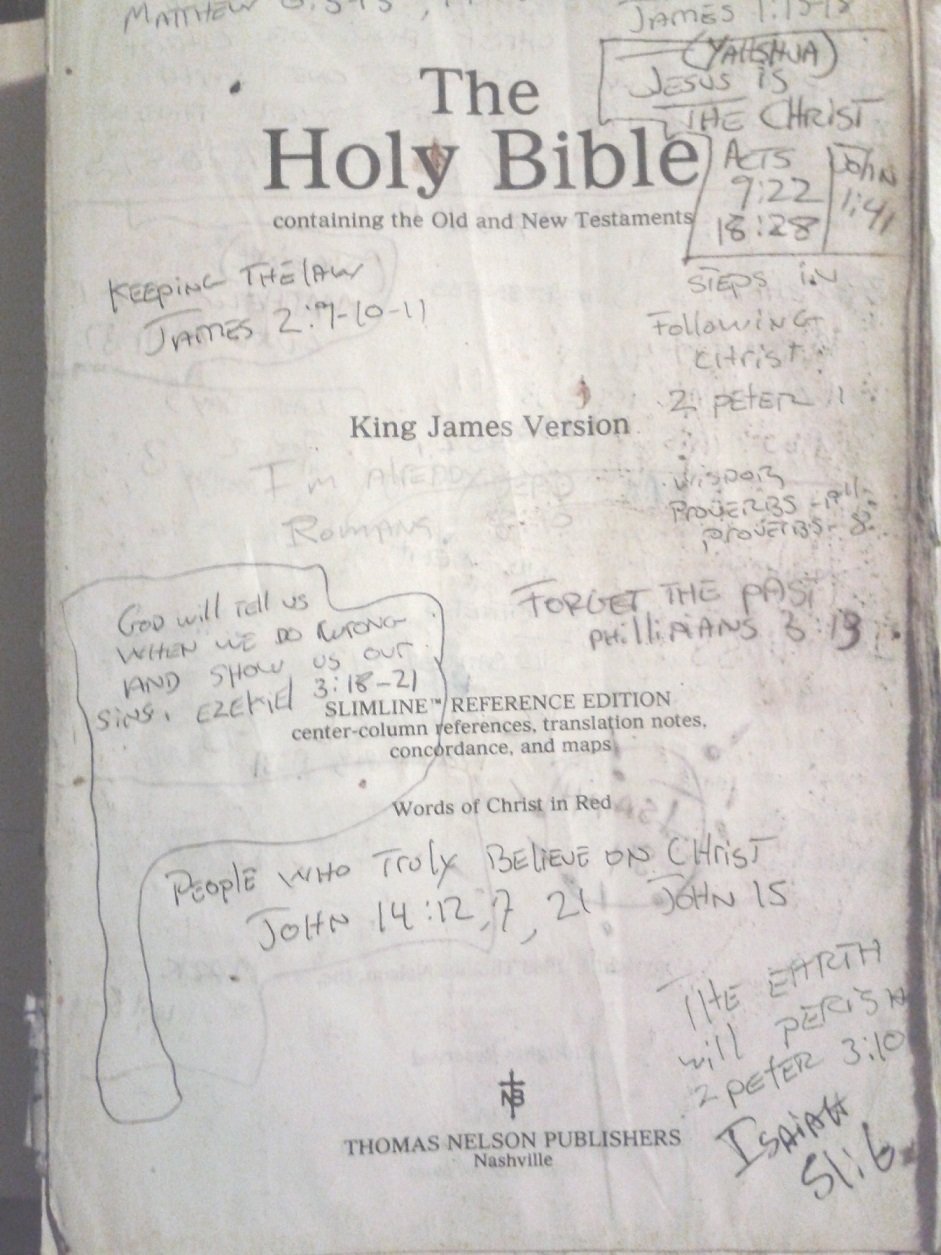 MATTHEW
JAMES 1:13-15
(YAHSHUA)
JESUS IS
THE CHRIST
ACTS
9:22
18:28
JOHN
1:41
The
Holy Bible
containing the Old and New Testaments
KEEPING THE LAW
JAMES 2:9-10-11
STEPS IN
FOLLOWING
CHRIST
2 PETER 1
King James Version
I'm ALREDDY DEAD
ROMANS
WISDOM
PROVERBS
PROVERBS - 8
FORGET THE PAST
PHILLIPIANS 3:13
GOD WILL TELL US
WHEN WE DO WRONG
AND SHOW US OUR
SINS. EZEKIEL 3:18-21
SLIMLINE™ REFERENCE EDITION
center-column references, translation notes,
concordance, and maps
Words of Christ in Red
PEOPLE WHO TRULY BELIEVE ON CHRIST
JOHN 14:12,7, 21 JOHN 15
THE EARTH
WILL PERISH
2 PETER 3:10
ISAIAH
51:6
NB
THOMAS NELSON PUBLISHERS
Nashville